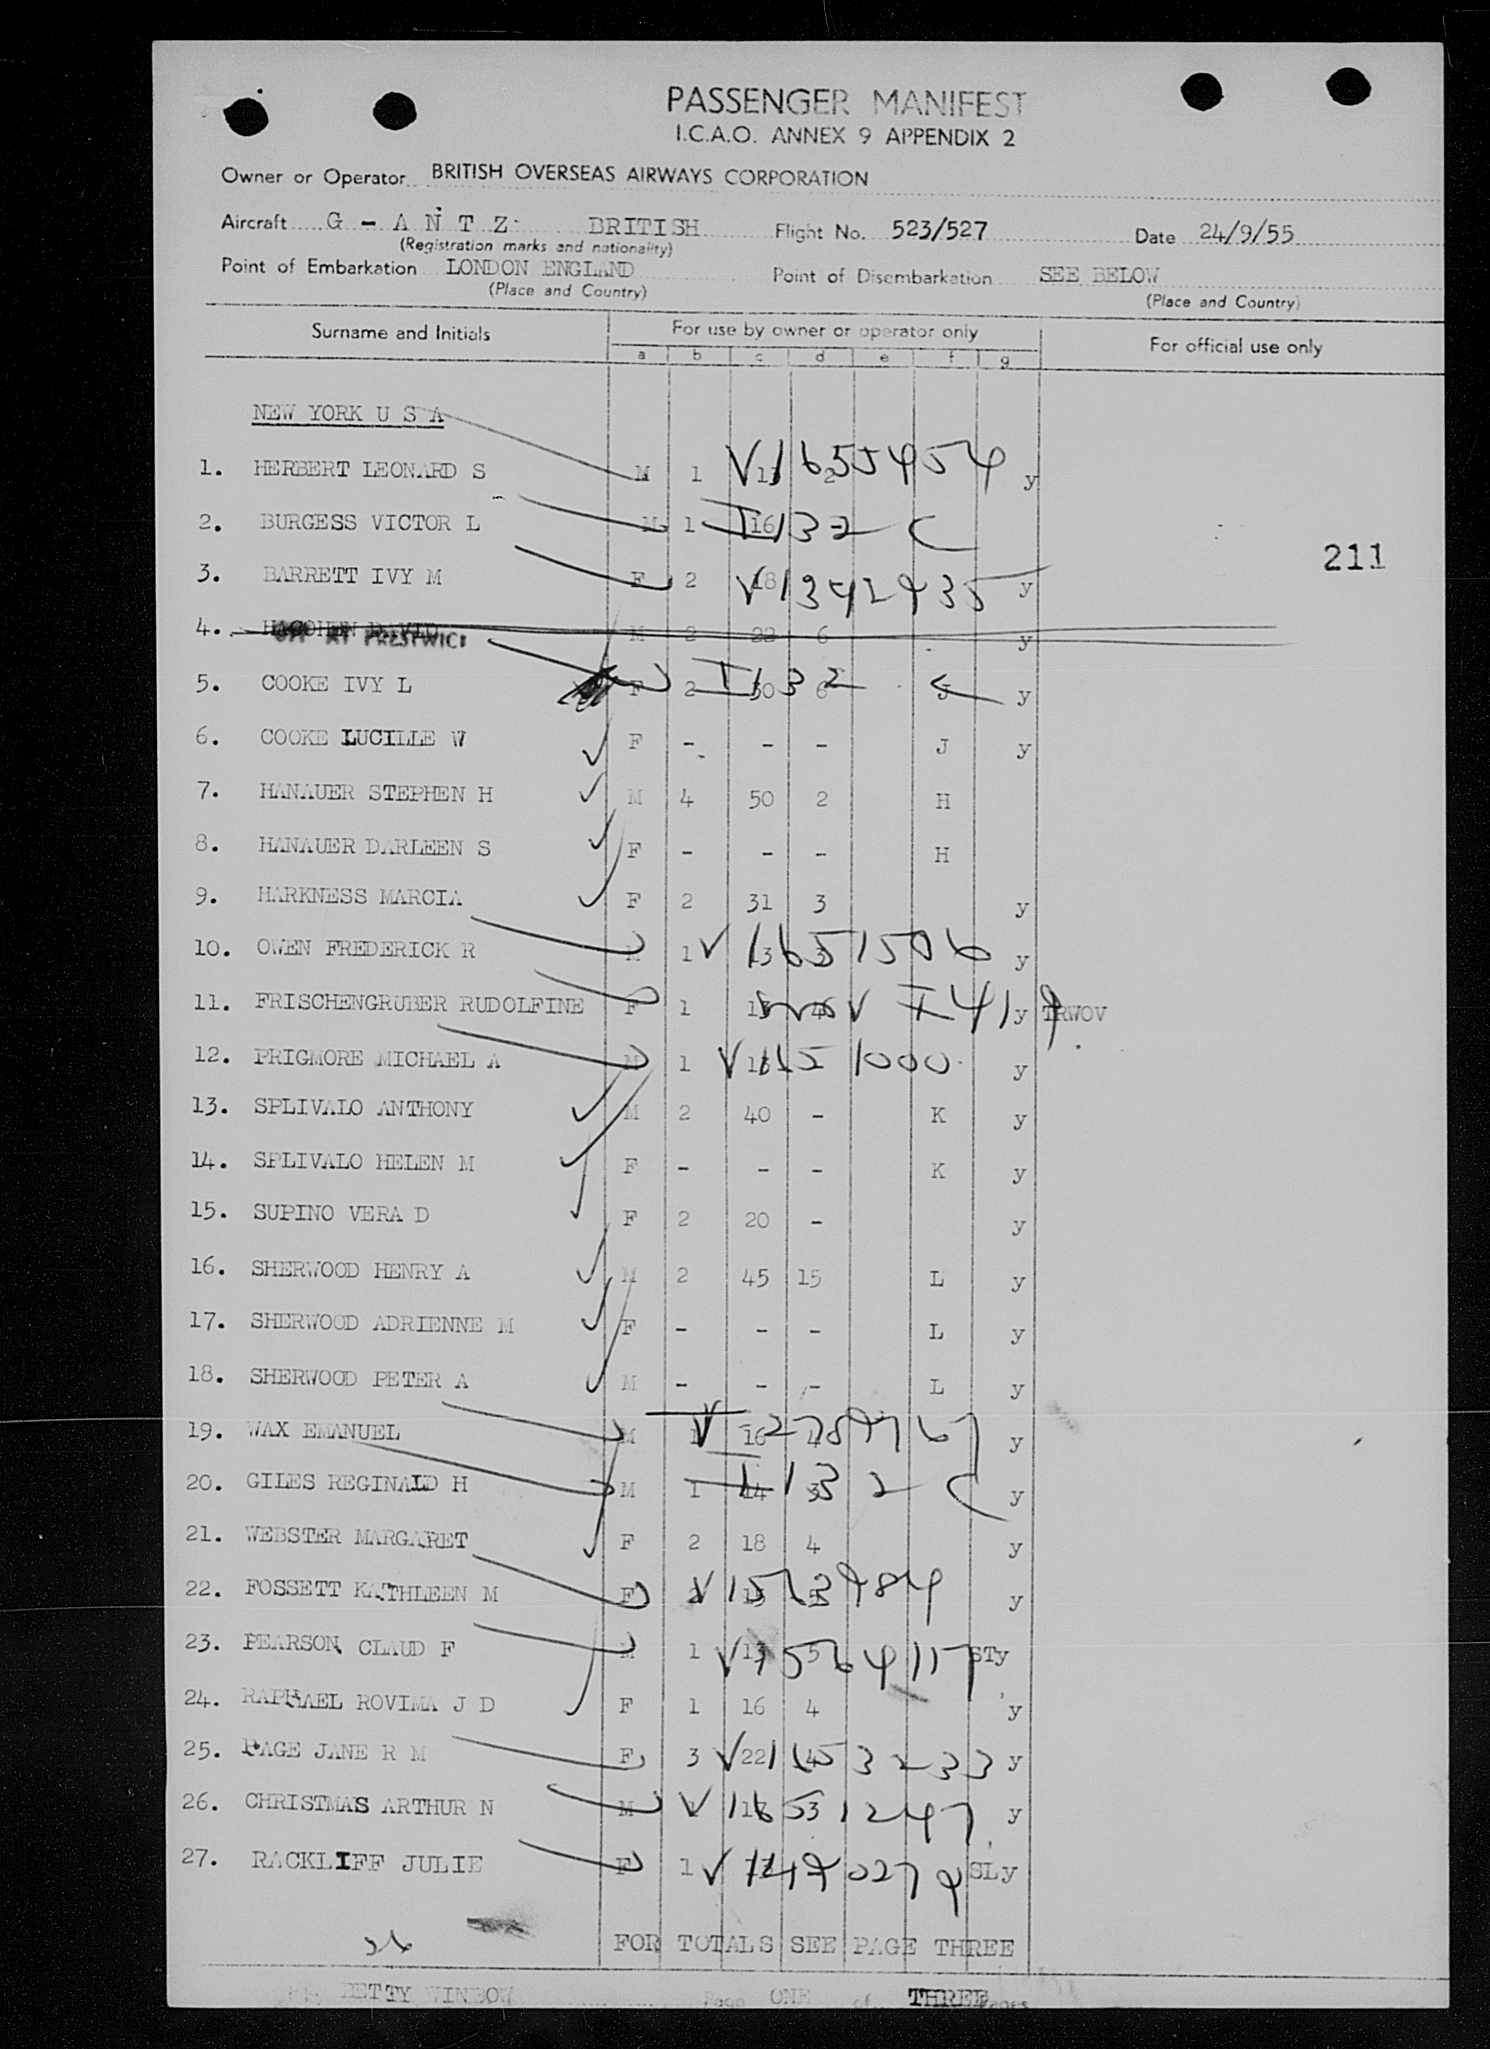 PASSENGER MANIFEST
I.C.A.O. ANNEX 9 APPENDIX 2
Owner or Operator BRITISH OVERSEAS AIRWAYS CORPORATION
Aircraft G - A N T Z BRITISH Flight No. 523/527 Date 24/9/55
(Registration marks and nationality)
Point of Embarkation LONDON ENGLAND Point of Disembarkation SEE BELOW
(Place and Country) (Place and Country)
Surname and Initials For use by owner or operator only For official use only
a b c d e f g
NEW YORK U S A
1. HERBERT LEONARD S M 1 V1655454 y
2. BURGESS VICTOR L M 1 16 I132 C
211
3. BARRETT IVY M F 2 18 y
4. HACOHEN DAVID M 2 22 6 y
OFF AT PRESTWICK
5. COOKE IVY L F 2 30 6 I132 J y
6. COOKE LUCILLE W F - - - J y
7. HANAUER STEPHEN H M 4 50 2 H
8. HANAUER DARLEEN S F - - - H
9. HARKNESS MARCIA F 2 31 3 y
10. OWEN FREDERICK R M 1 V 1651506 y
11. FRISCHENGRUBER RUDOLFINE F 1 y TRWOV
12. PRIGMORE MICHAEL A M 1 y
13. SPLIVALO ANTHONY M 2 40 - K y
14. SPLIVALO HELEN M F - - - K y
15. SUPINO VERA D F 2 20 - y
16. SHERWOOD HENRY A M 2 45 15 L y
17. SHERWOOD ADRIENNE M F - - - L y
18. SHERWOOD PETER A M - - - L y
19. WAX EMANUEL M 1 16 4 y
20. GILES REGINALD H M 1 14 3 I132 C y
21. WEBSTER MARGARET F 2 18 4 y
22. FOSSETT KATHLEEN M F y
23. PEARSON CLAUD F M 1 13 5 V1564117 STy
24. RAPHAEL ROVIMA J D F 1 16 4 y
25. PAGE JANE R M F 3 22 4 y
26. CHRISTMAS ARTHUR N M V 1651247 y
27. RACKLIFF JULIE F 1 SLy
FOR TOTALS SEE PAGE THREE
BETTY WINBOW Page ONE of THREE Pages